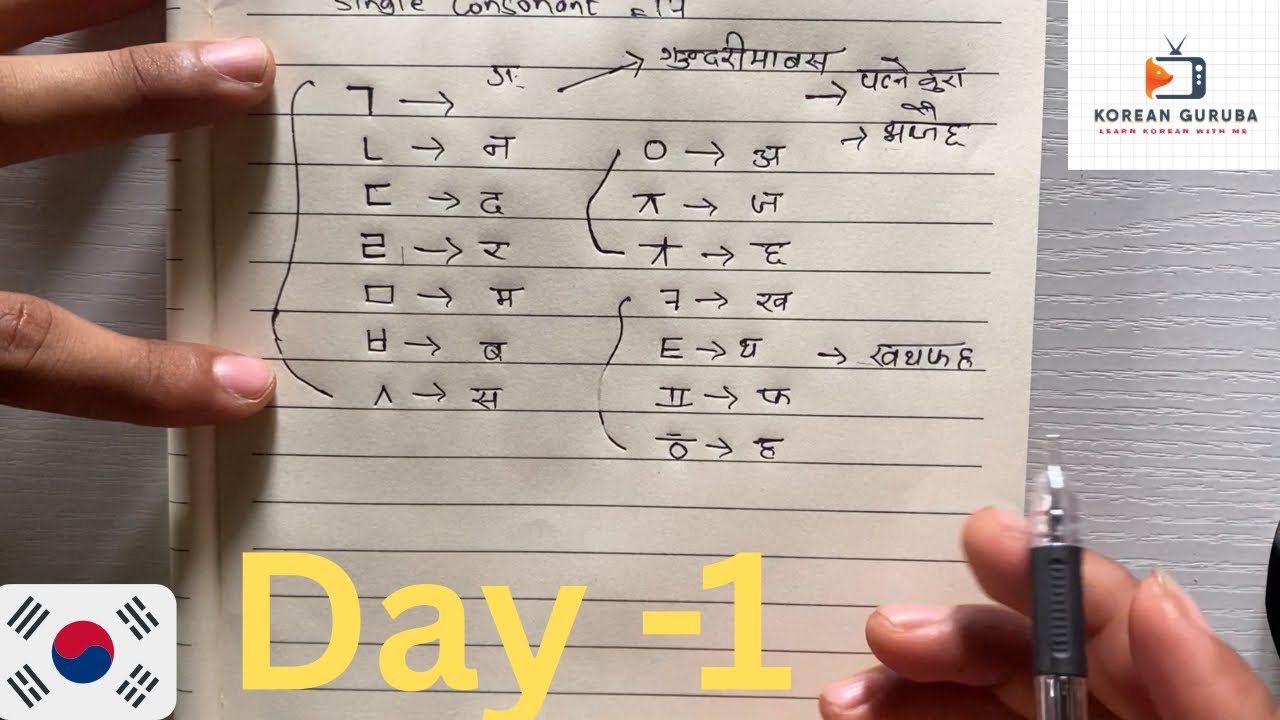 Single Consonant = 14
ㄱ → ग
ㄴ → न
ㄷ → द
ㄹ → र
ㅁ → म
ㅂ → ब
ㅅ → स
→ गनदरीमाबस
→ पढ्ने कुरा
ㅇ → अ
ㅈ → ज
ㅊ → छ
→ अजछ
ㅋ → ख
ㅌ → थ
ㅍ → फ
ㅎ → ह
→ खथफह
KOREAN GURUBA
LEARN KOREAN WITH ME
Day -1